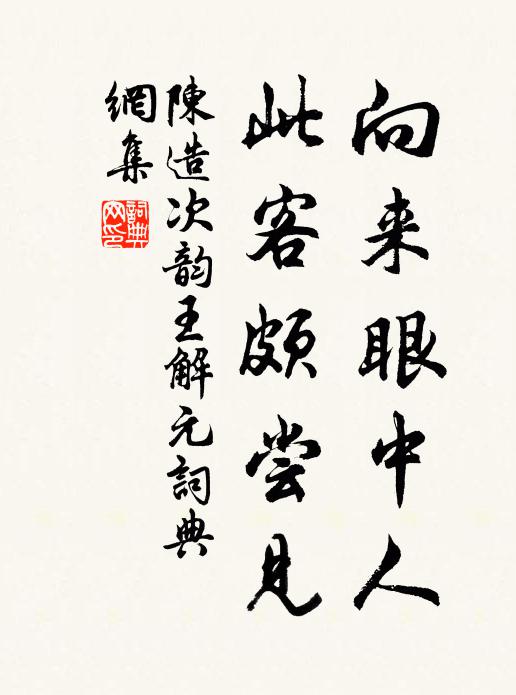 向来眼中人
此客頗尝見
陳造次韵王解元詞典
網集
詞典網印